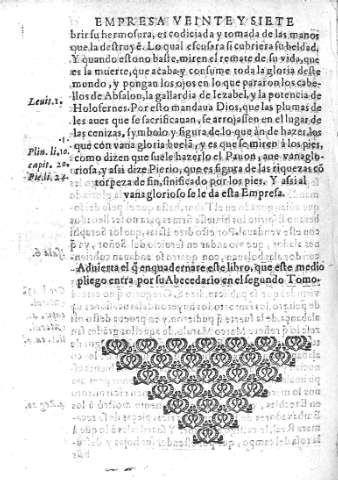 EMPRESA VEINTE Y SIETE
brir su hermosura, es codiciada y tomada de las manos
que la destruyẽ. Lo qual escusara si cubriera su beldad.
Y quando esto no baste, miren el remate de su vida, que
es la muerte, que acaba y consume toda la gloria deste
mundo, y pongan los ojos en lo que pararon los cabe-
llos de Absalon, la gallardia de Iezabel, y la potencia de
Holofernes. Por esto mandaua Dios, que las plumas de
Leuit. 1.
les aues que se sacrificauan, se arrojassen en el lugar de
las cenizas, symbolo y figura de lo que àn de hazer los
que cõn vana gloria buelã, y es que se miren à los pies,
Plin. li, 10.
como dizen que suele hazerlo el Pauon, aue vanaglo-
capit. 20.
riosa, y assi dize Pierio, que es figura de las riquezas cõ
Pie. li. 24.
torpeza de fin, sinificado por los pies. Y assi al
vana glorioso se le da esta Empresa.
Aduierta el q̃ enquadernare este libro, que este medio
pliego entra por su Abecedario en el segundo Tomo.